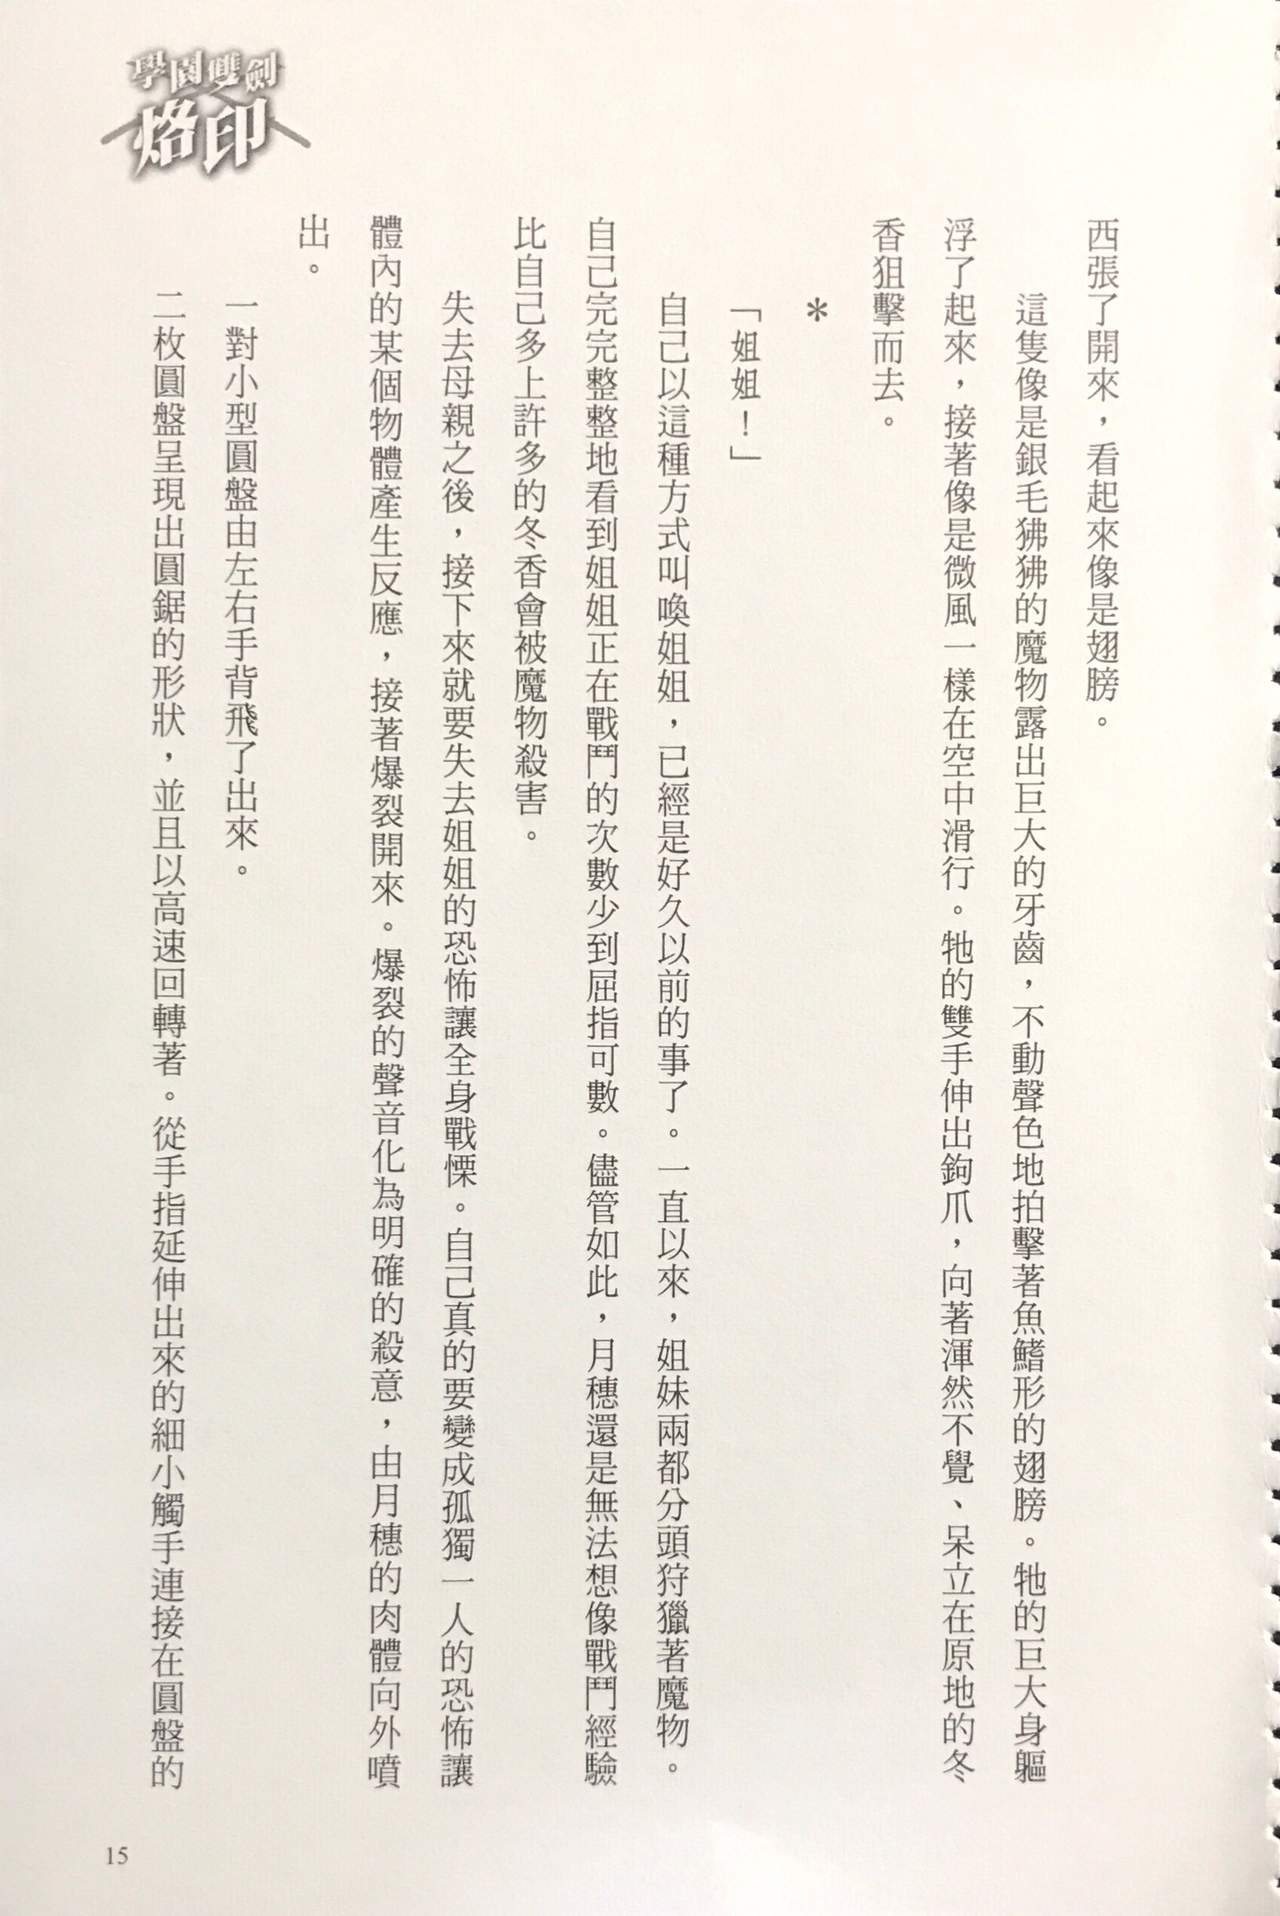 學園雙劍
烙印
西張了開來，看起來像是翅膀。
這隻像是銀毛狒狒的魔物露出巨大的牙齒，不動聲色地拍擊著魚鰭形的翅膀。牠的巨大身軀
浮了起來，接著像是微風一樣在空中滑行。牠的雙手伸出鉤爪，向著渾然不覺、呆立在原地的冬
香狙擊而去。
＊
「姐姐！」
自己以這種方式叫喚姐姐，已經是好久以前的事了。一直以來，姐妹兩都分頭狩獵著魔物。
自己完完整整地看到姐姐正在戰鬥的次數少到屈指可數。儘管如此，月穗還是無法想像戰鬥經驗
比自己多上許多的冬香會被魔物殺害。
失去母親之後，接下來就要失去姐姐的恐怖讓全身戰慄。自己真的要變成孤獨一人的恐怖讓
體內的某個物體產生反應，接著爆裂開來。爆裂的聲音化為明確的殺意，由月穗的肉體向外噴
出。
一對小型圓盤由左右手背飛了出來。
二枚圓盤呈現出圓鋸的形狀，並且以高速回轉著。從手指延伸出來的細小觸手連接在圓盤的
15